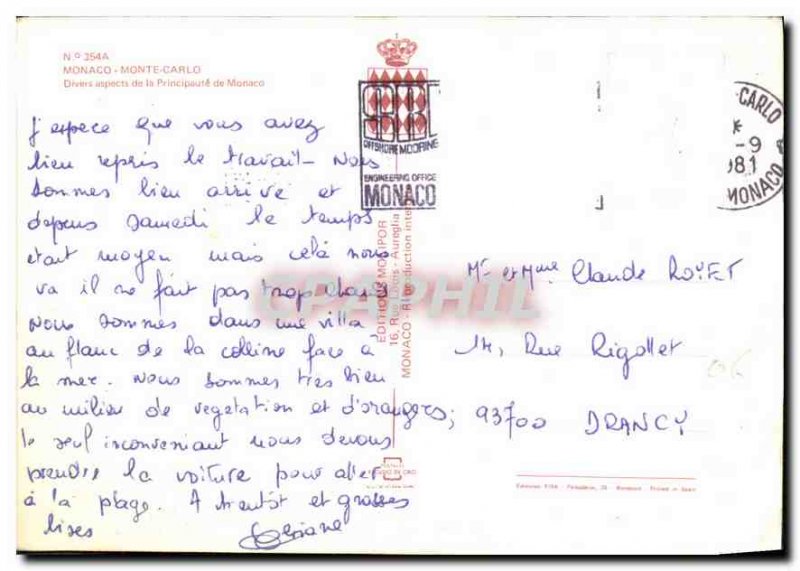 N.º 354A
MONACO - MONTE-CARLO
Divers aspects de la Principauté de Monaco
J'espece que vous avez
bien repris le travail - Nous
sommes bien arrivé et
depuis samedi le temps
était moyen mais celà nous
va il ne fait pas trop chaud
Nous sommes dans une villa
au flanc de la colline face à
la mer. Nous sommes très bien
au milieu de vegetation et d'orangers,
le seul inconveniant nous devons
prendre la voiture pour aller
à la plage. A bientôt et grosses
bises
OFFSHORE MOORING
ENGINEERING OFFICE
MONACO
-CARLO
-9
981
MONACO
EDITIONS MOLIPOR
16, Rue Louis - Aureglia
MONACO - Reproduction inter
CPAPHIL
Mr et Mme Claude ROYET
14, Rue Rigollet
93700 DRANCY
OK
Printed in Spain